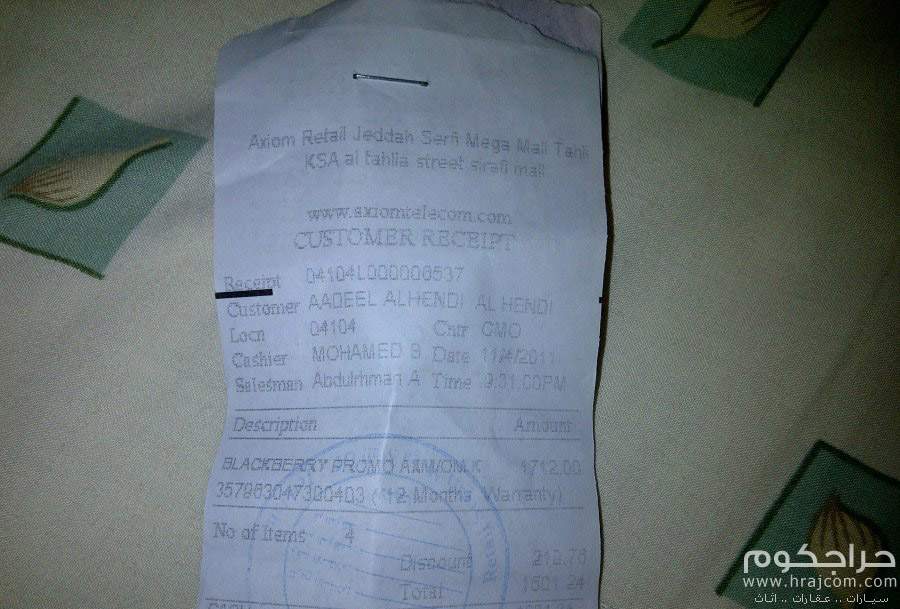 Axiom Retail Jeddah Serfi Mega Mall Tahli
KSA al tahlia street sirafi mall
www.axiomtelecom.com
CUSTOMER RECEIPT
Receipt 04104L000006537
Customer AADEEL ALHENDI AL HENDI
Locn 04104 Cntr CMO
Cashier MOHAMED B Date 11/4/2011
Salesman Abdulrhman A Time 9:31:00PM
Description Amount
BLACKBERRY PROMO 1712.00
357963047300403 (12 Months Warranty)
No of Items 4
Discount 210.76
Total 1501.24
Retail
حراجكوم
www.hrajcom.com
سيارات .. عقارات .. اثاث